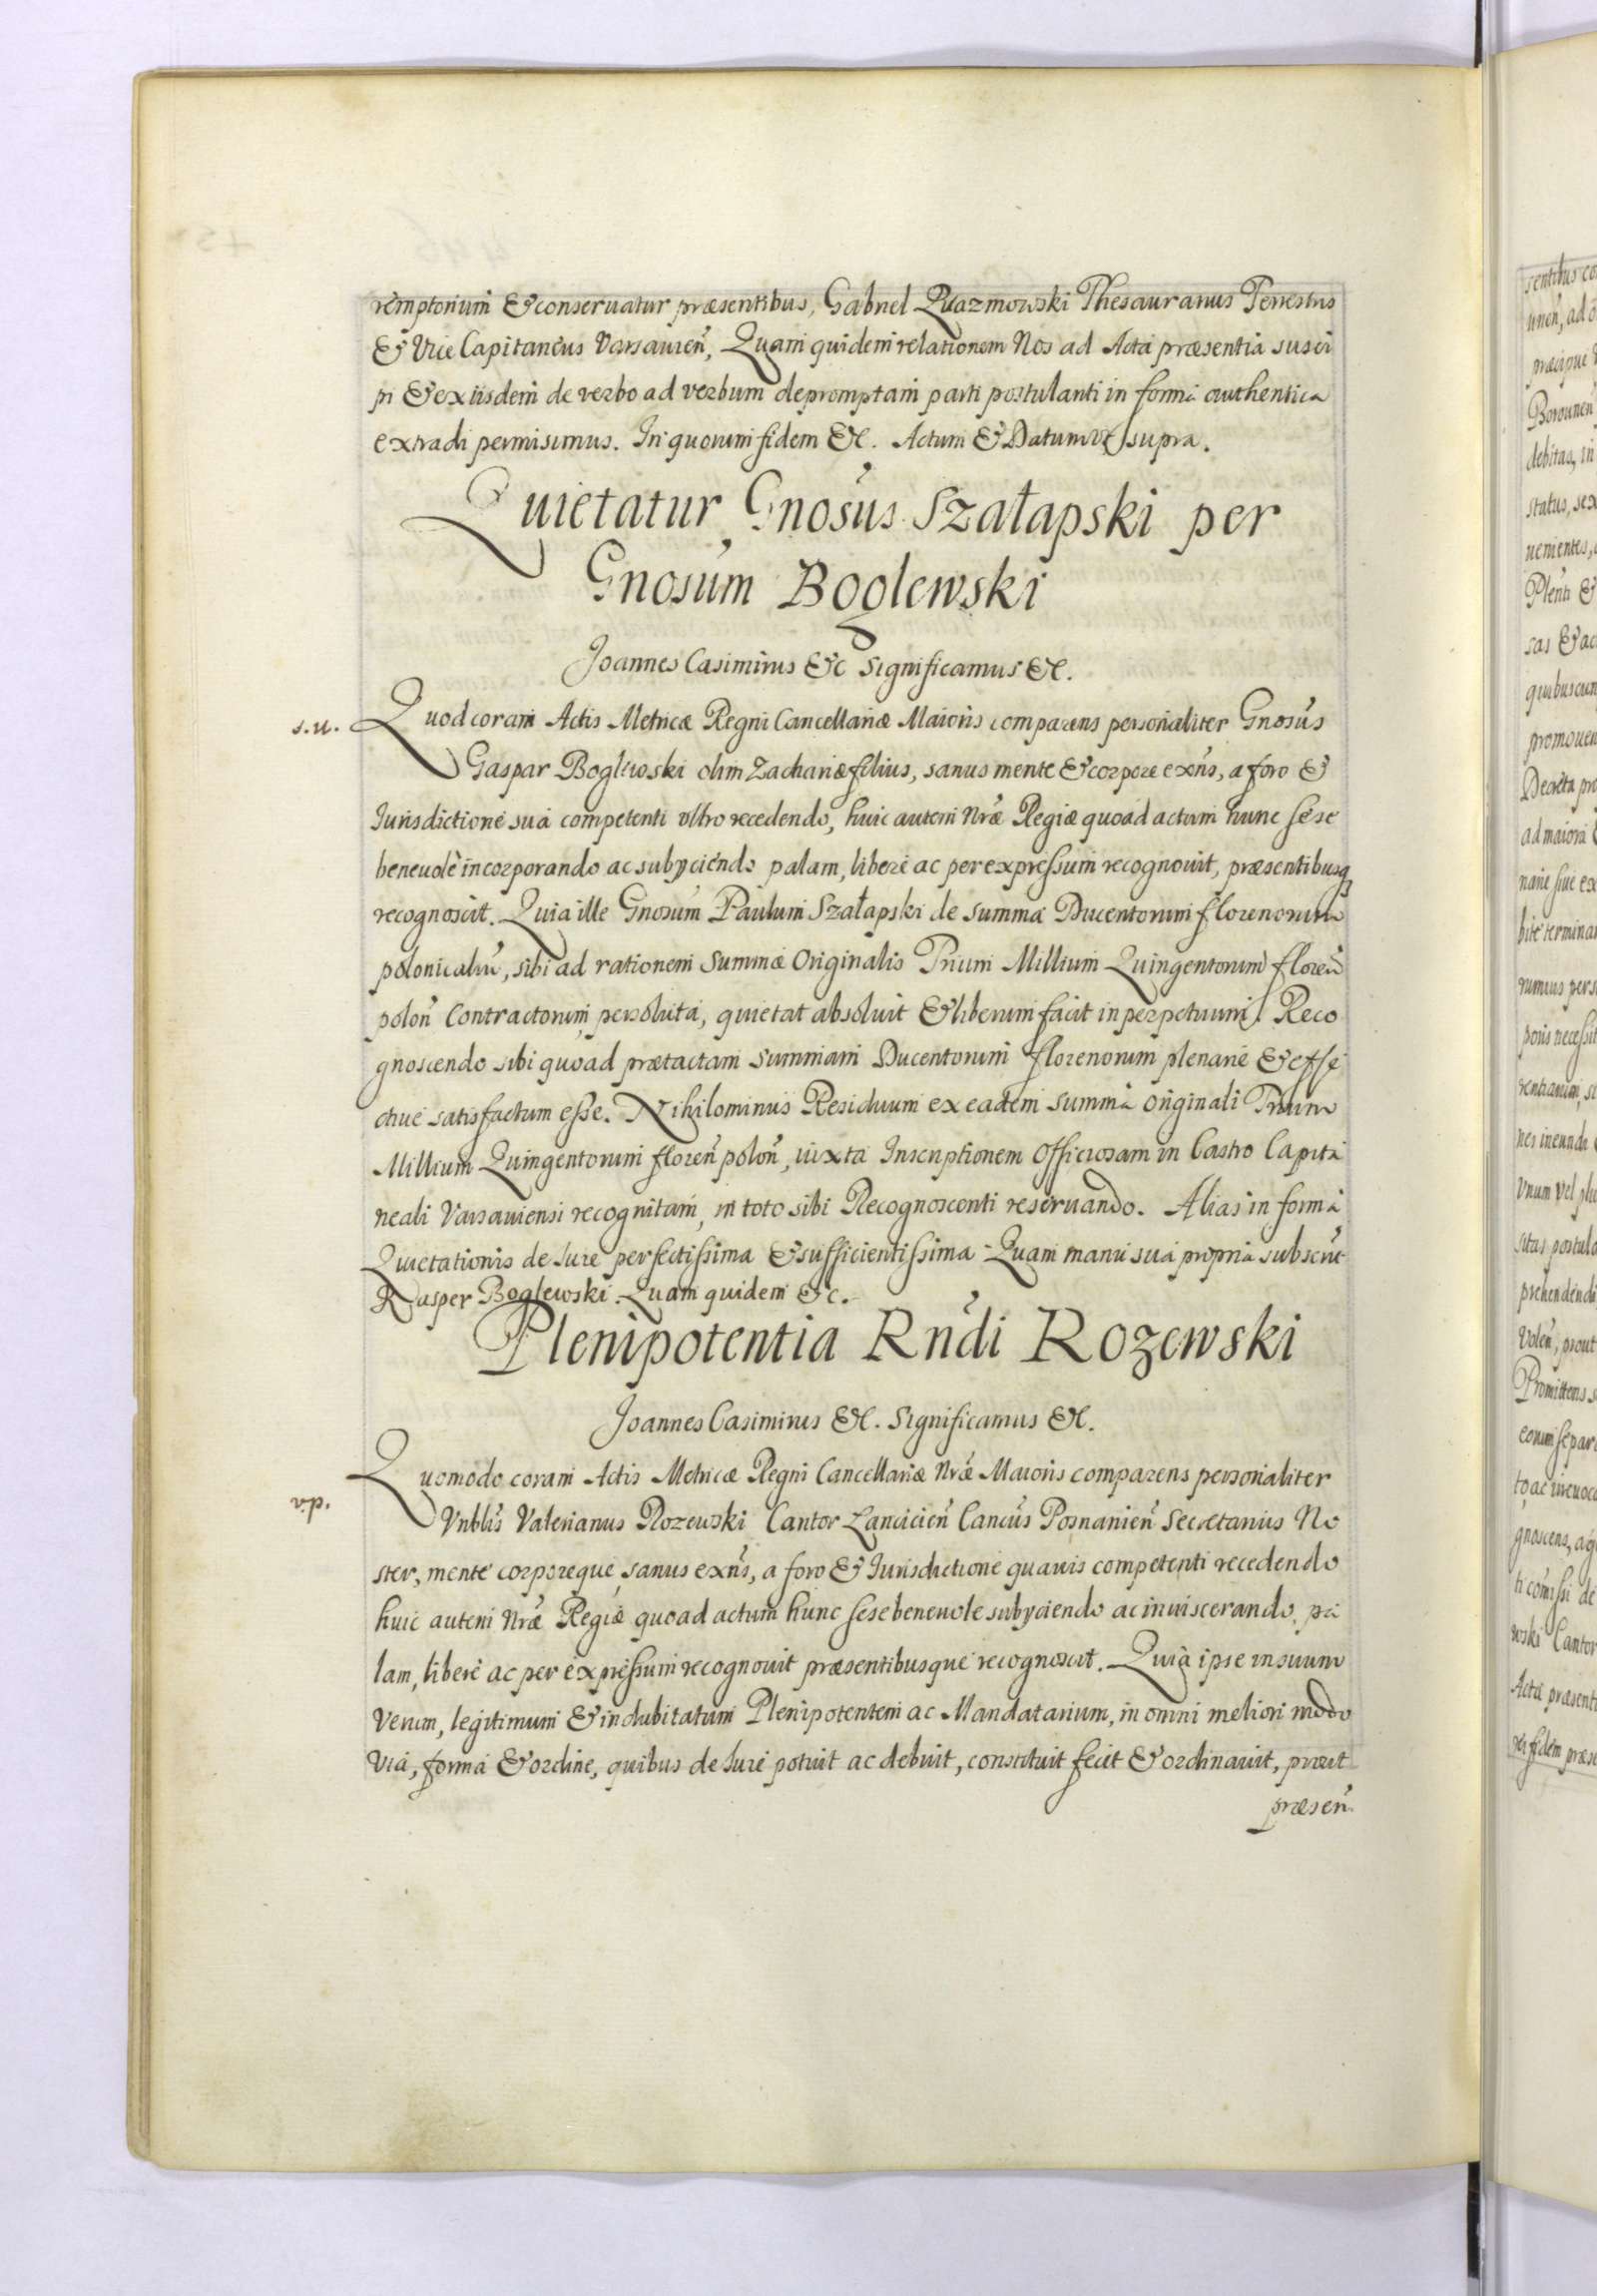 remptorium & conseruatur præsentibus, Gabriel Prazmowski Thesaurarius Terrestris
& Vice Capitaneus Varsauien̄, Quam quidem relationem Nos ad Acta præsentia susci
pi & ex iisdem de verbo ad verbum depromptam parti postulanti in forma authentica
extradi permisimus. In quorum fidem &c. Actum & Datum vt supra.
Quietatur Gnosus Szałapski per
Gnosum Boglewski
Joannes Casimirus &c Significamus &c.
s.u.
Quod coram Actis Metricæ Regni Cancellariæ Maioris comparens personaliter Gnosus
Gaspar Boglewski olim Zachariæ filius, sanus mente & corpore exn̄s, a foro &
Jurisdictione sua competenti vltro recedendo, huic autem Nrǣ Regiæ quoad actum hunc sese
beneuolè incorporando ac subyciendo palam, liberè ac per expressum recognouit, præsentibusq₃
recognoscit. Quia ille Gnosum Paulum Szałapski de summa Ducentorum florenorum
polonicaliū, sibi ad rationem Summæ Originalis Trium Millium Quingentorum floren̄
polon̄ Contractorum persoluta, quietat absoluit & liberum facit in perpetuum. Reco
gnoscendo sibi quoad prætactam summam Ducentorum florenorum plenarie & effe
ctiue satisfactum esse. Nihilominus Residuum ex eadem summa originali Trium
Millium Quingentorum floren̄ polon̄, iuxta Inscriptionem Officiosam in Castro Capita
neali Varsauiensi recognitam, in toto sibi Recognoscenti reseruando. Alias in forma
Quietationis de Jure perfectissima & sufficientissima. Quam manu sua propria subscrit
Kasper Boglewski. Quam quidem &c.
Plenipotentia Rndi Rozewski
Joannes Casimirus &c. Significamus &c.
Quomodo coram Actis Metricæ Regni Cancellariæ Nrǣ Maioris comparens personaliter
dia.
Vnblis Valerianus Rozewski Cantor Lancicien̄ Cancus Posnanien̄ Secretarius No
ster, mente corporeque sanus exn̄s, a foro & Jurisdictione quauis competenti recedendo
huic autem Nrǣ Regiæ quoad actum hunc sese beneuole subyciendo ac inuiscerando, pa
lam, liberè ac per expressum recognouit præsentibusque recognoscit. Quia ipse in suum
Verum, legitimum & indubitatum Plenipotentem ac Mandatarium, in omni meliori modo
Via, forma & ordine, quibus de Jure potuit ac debuit, constituit fecit & ordinauit, prout
præsen̄